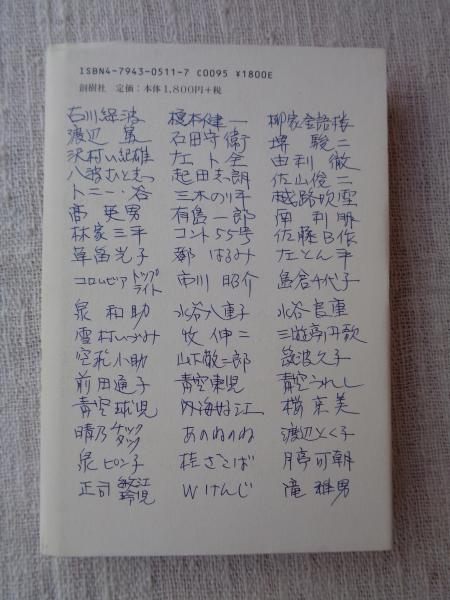 ISBN4-7943-0511-7 C0095 ¥1800E
創樹社 定価:本体1,800円+税
古川緑波 榎本健一 柳家金語楼
渡辺篤 石田守衛 堺駿二
沢村い紀雄 左卜全 由利徹
八波むと志 起田志朗 佐山俊二
トニー・谷 三木のり平 越路吹雪
高英男 有島一郎 南利明
林家三平 コント55号 佐藤B作
草笛光子 都はるみ 左とん平
コロムビアトップライト 市川昭介 島倉千代子
泉和助 水谷八重子 水谷良重
雪村いづみ 牧伸二 三遊亭円歌
空飛小助 山下敬二郎 筑波久子
前田通子 青空東児 青空うれし
青空球児 内海好江 桜京美
晴乃チックタック あのねのね 渡辺とく子
泉ピン子 桂ざこば 月亭可朝
正司敏江玲児 Wけんじ 滝雅男